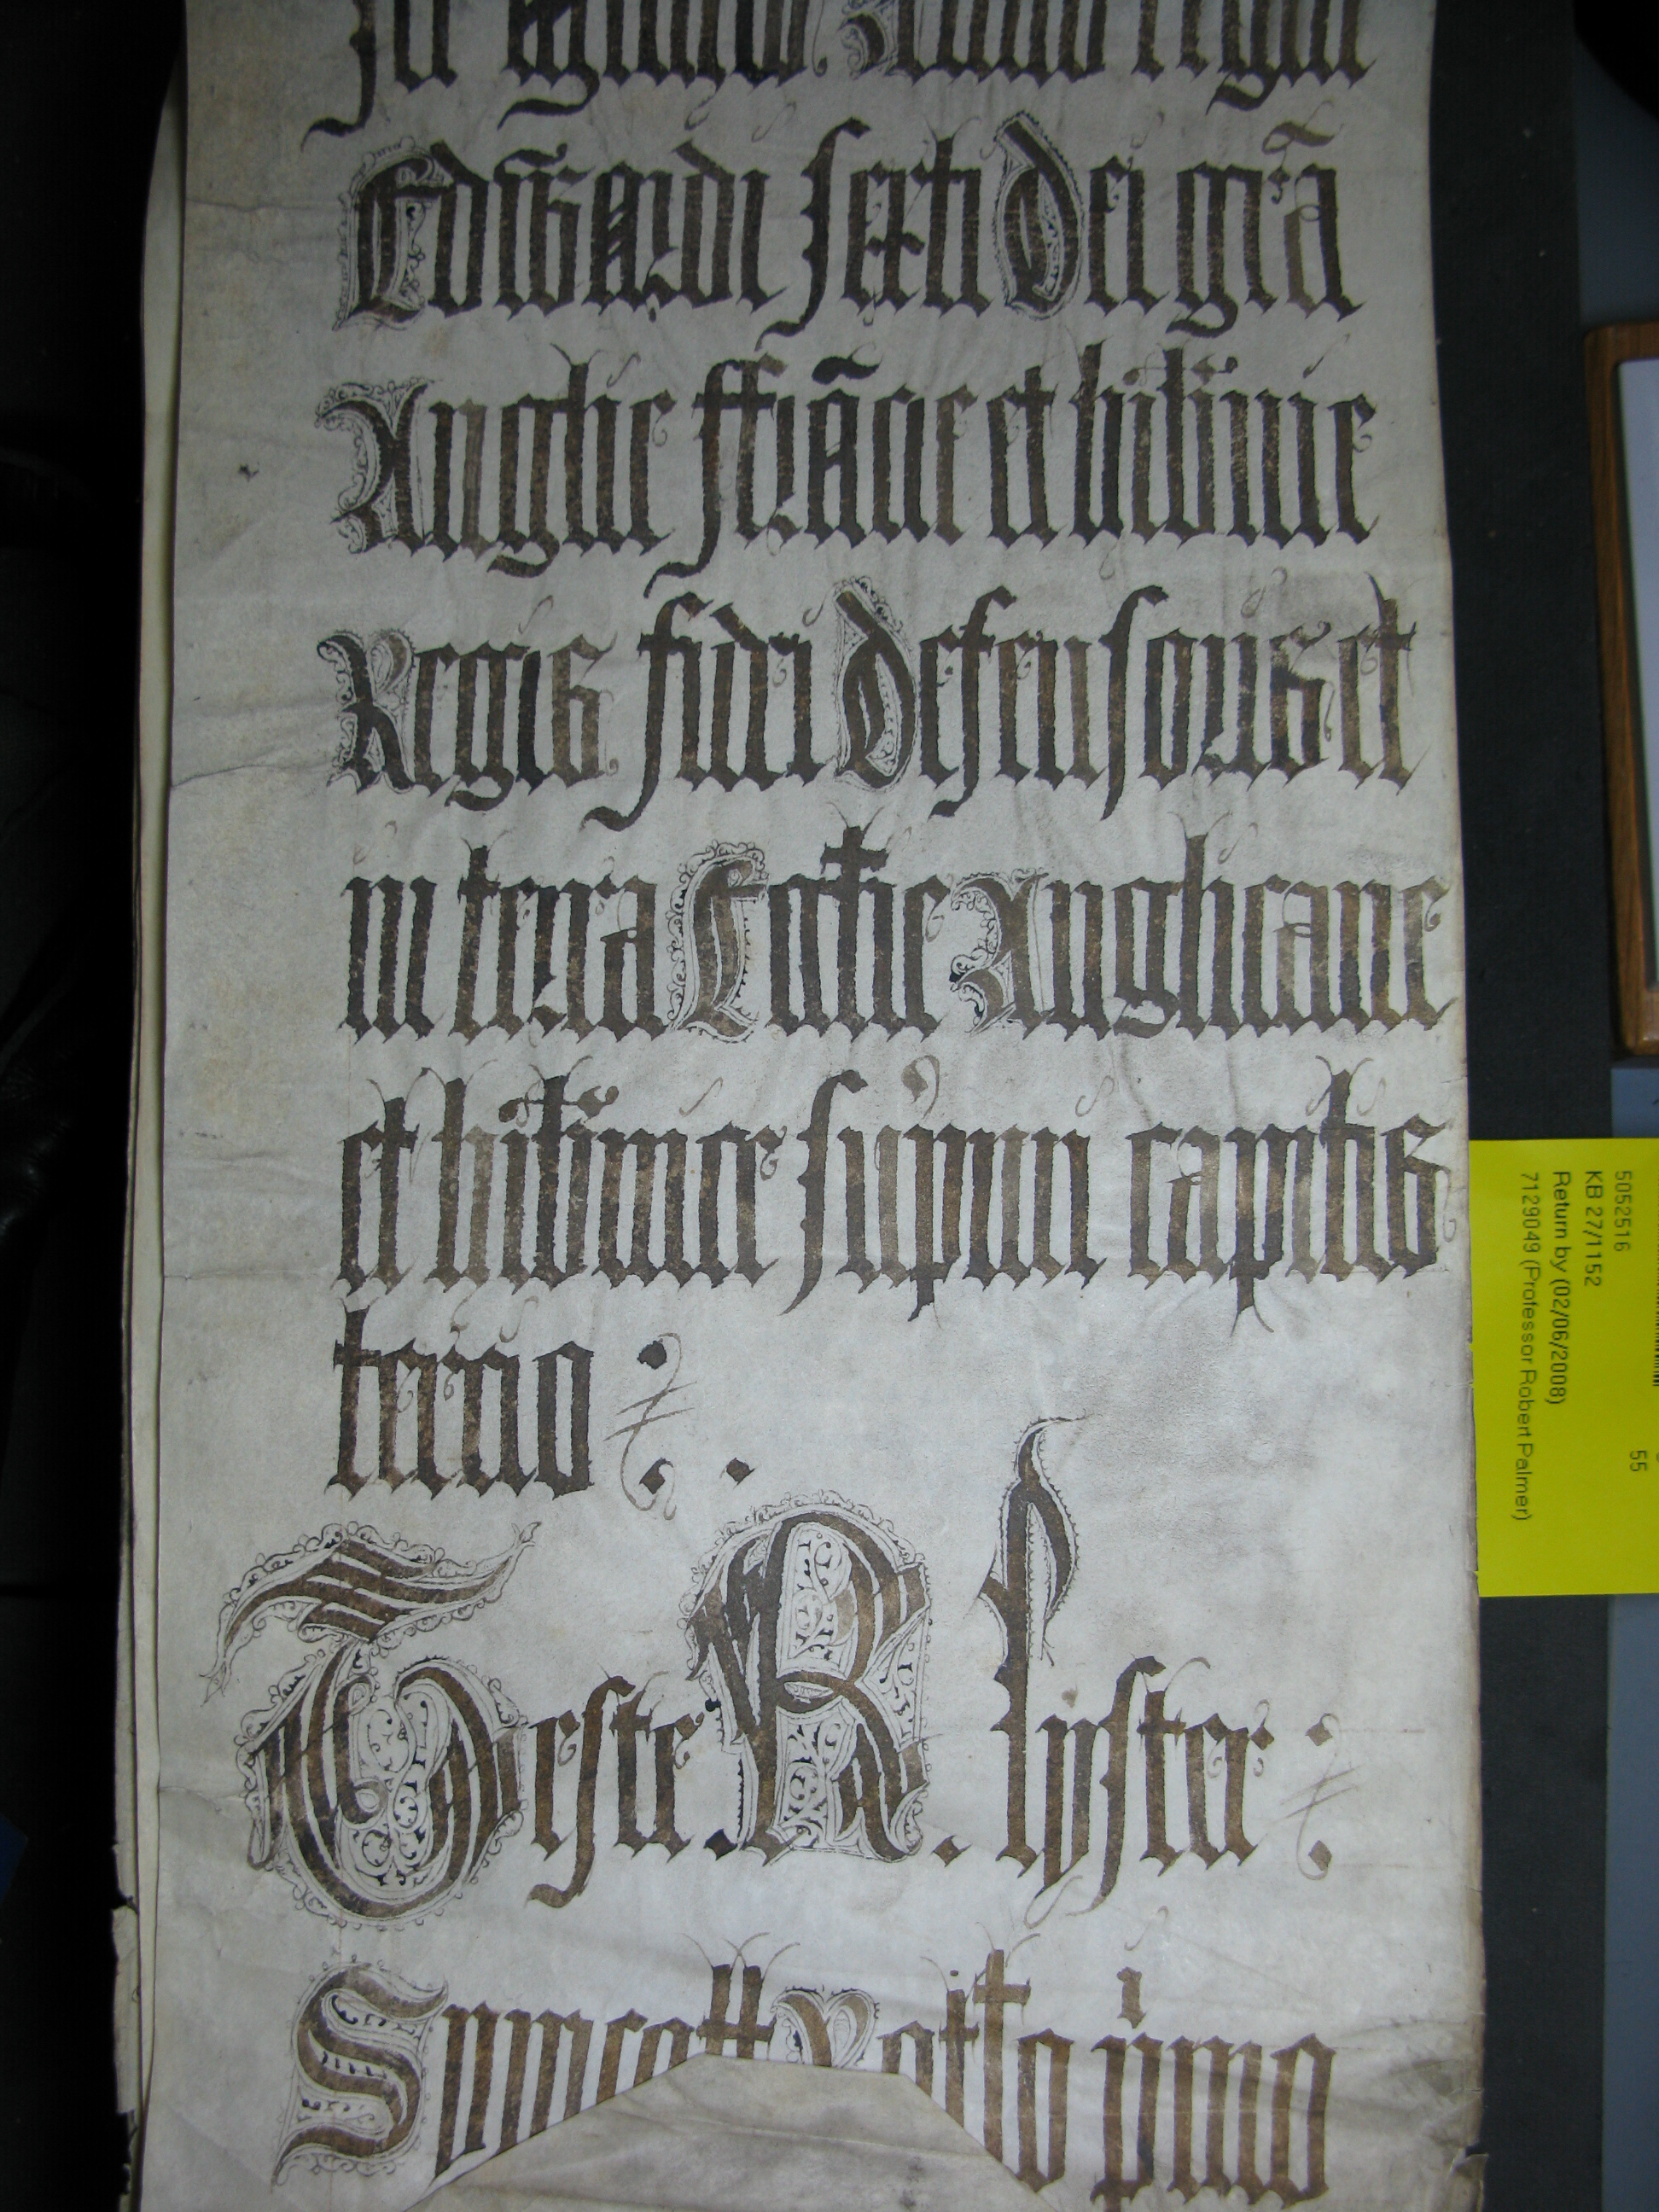 Anno regni
Edwardi sexti Dei gr̃a
Anglie ffrãcie et hib̃nie
Regis fidei Defensoris et
in terra Eccl̃ie Anglicane
et hib̃nice sup̃mi capitis
tercio
Teste . R . lyster
Rotl̃o p̃mo
5052516
KB 27/1152
Return by (02/06/2008)
7129049 (Professor Robert Palmer)
55